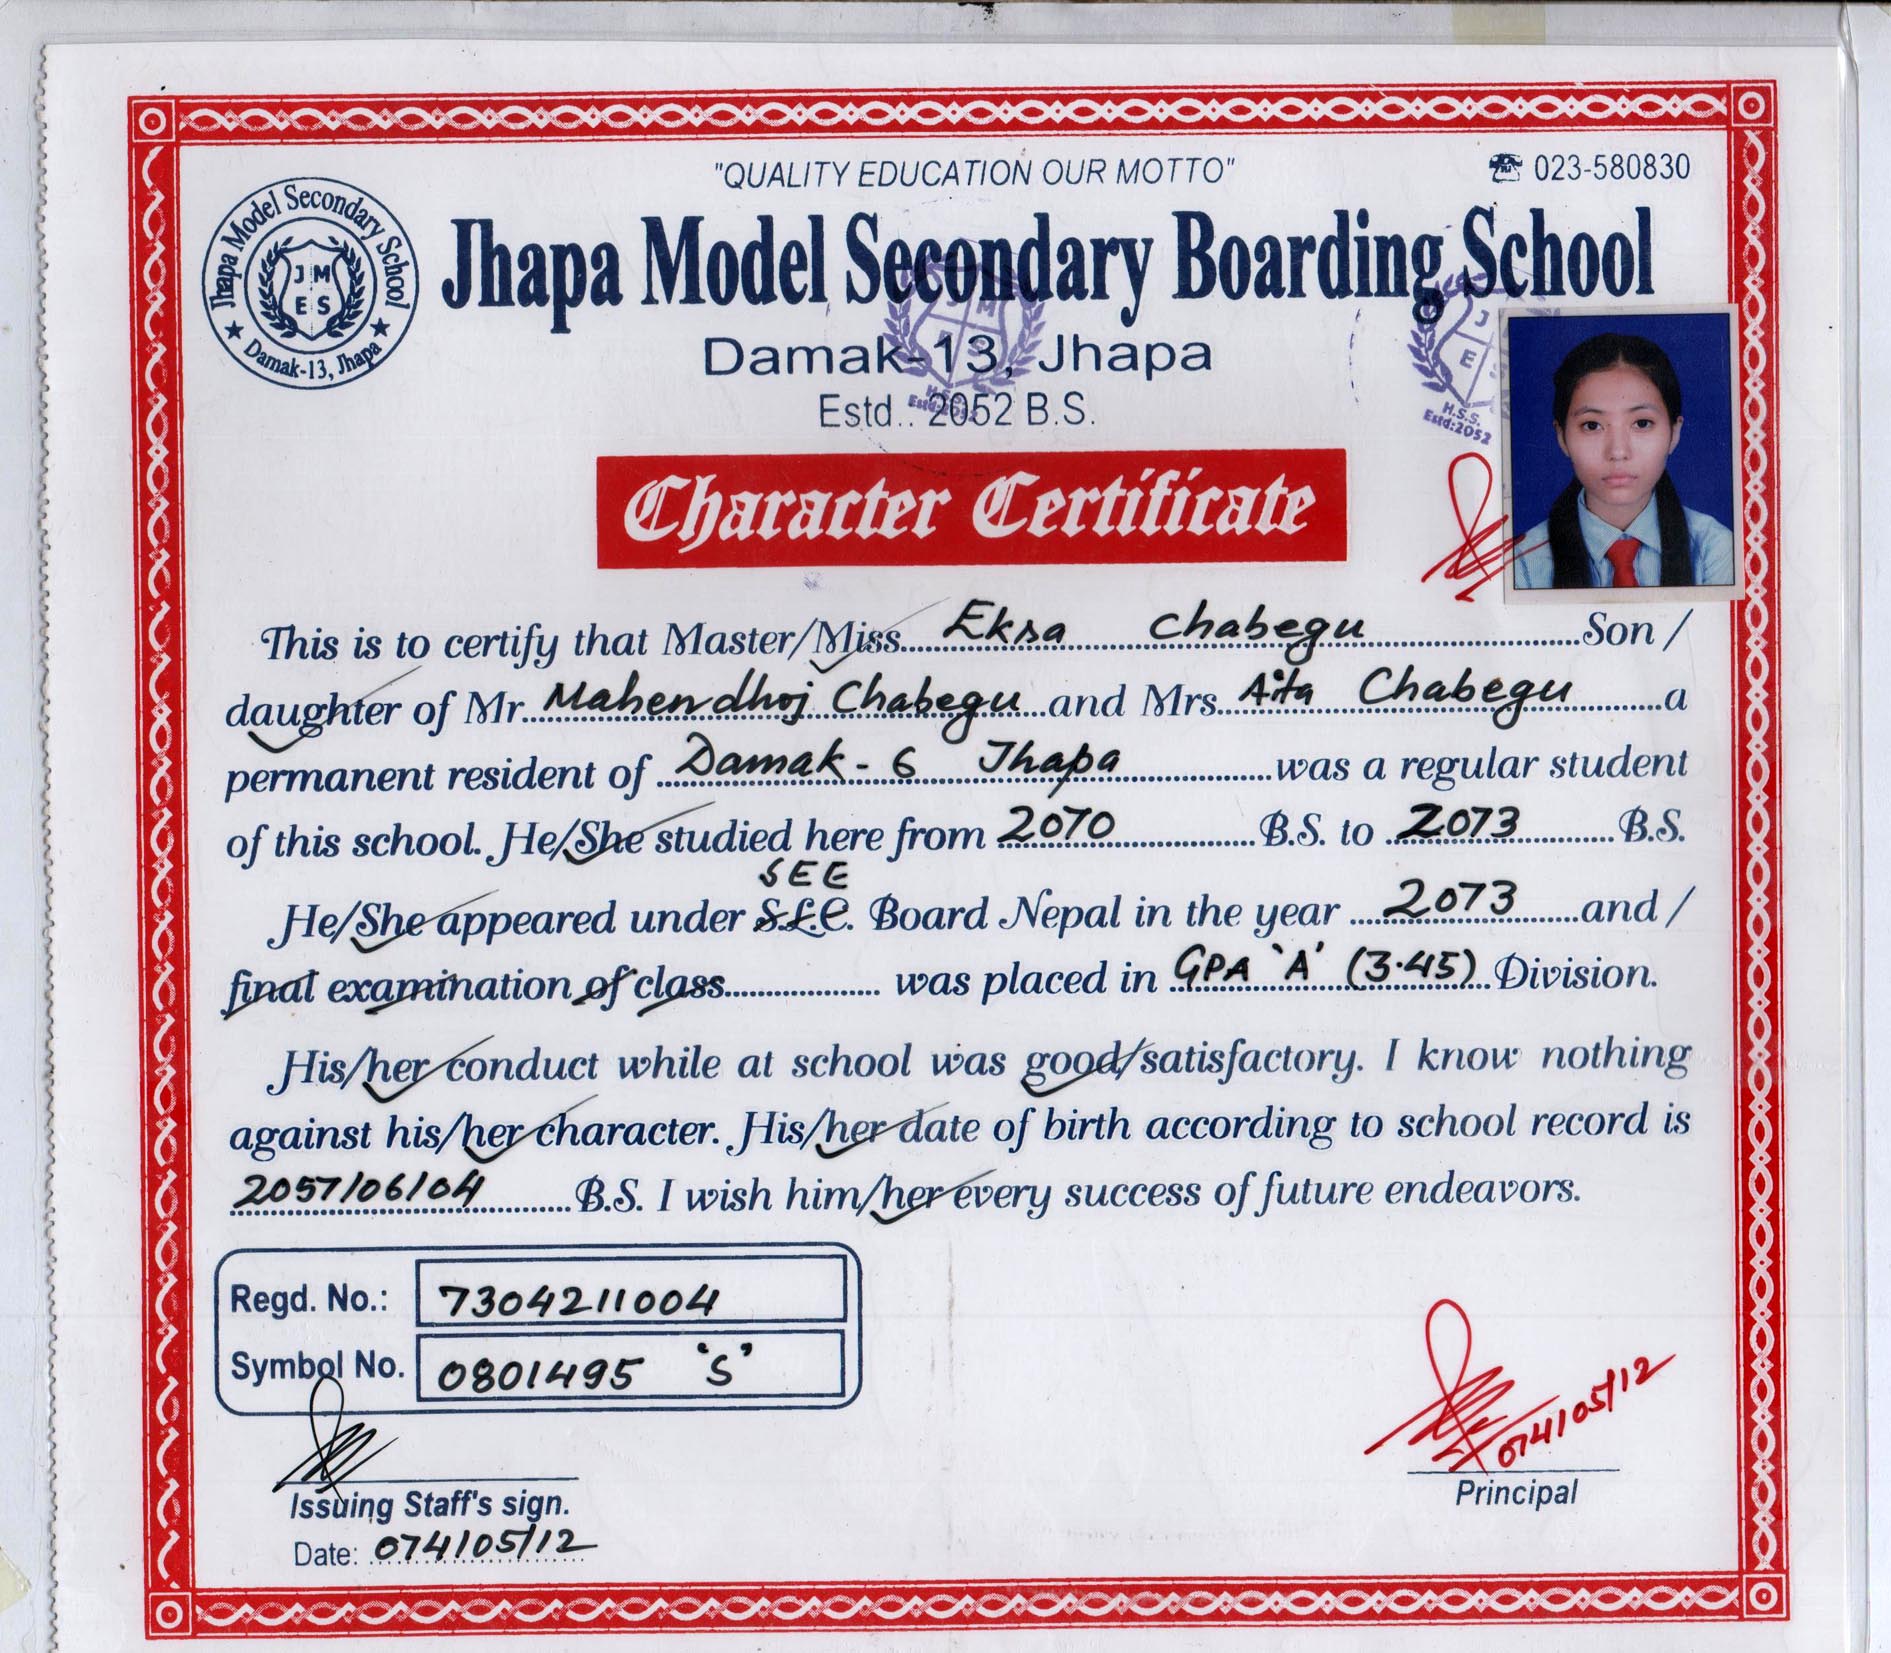 "QUALITY EDUCATION OUR MOTTO"
☎ 023-580830
Jhapa Model Secondary School
J M
E S
★ Damak-13, Jhapa ★
Jhapa Model Secondary Boarding School
Damak-13, Jhapa
Estd.. 2052 B.S.
J M
H.S.S.
Estd:2052
J
E S
H.S.S.
Estd:2052
Character Certificate
This is to certify that Master/Miss Eksa Chabegu Son /
daughter of Mr. Mahendhoj Chabegu and Mrs. Aita Chabegu a
permanent resident of Damak - 6 Jhapa was a regular student
of this school. He/She studied here from 2070 B.S. to 2073 B.S.
SEE
He/She appeared under S.L.C. Board Nepal in the year 2073 and /
final examination of class was placed in GPA 'A' (3.45) Division.
His/her conduct while at school was good/satisfactory. I know nothing
against his/her character. His/her date of birth according to school record is
2057/06/04 B.S. I wish him/her every success of future endeavors.
Regd. No.: 7304211004
Symbol No. 0801495 'S'
Issuing Staff's sign.
Date: 074/05/12
074/05/12
Principal